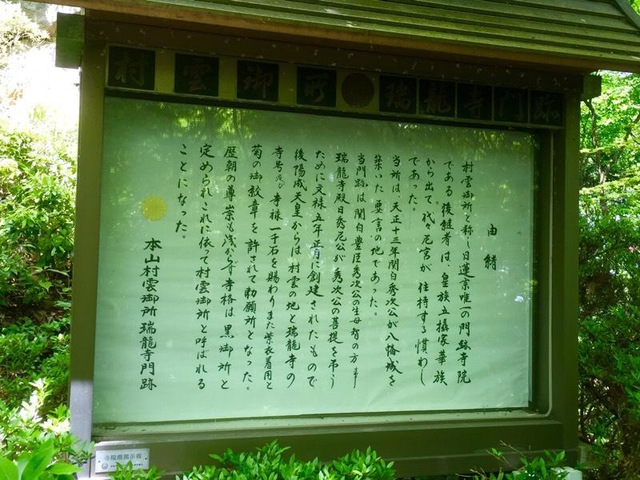 村雲御所 瑞龍寺門跡
由緒
村雲御所と称し日蓮宗唯一の門跡寺院
である後継者は、皇族五攝家華族
から出て代々尼宮が住持する慣わし
であった。
当所は天正十三年関白秀次公が八幡城を
築いた要害の地であった。
当門跡は関白豊臣秀次公の生母智の方
瑞龍寺殿日秀尼公が秀次公の菩提を弔う
ために文禄五年正月に創建されたもので
後陽成天皇からは村雲の地と瑞龍寺の
寺号及び寺禄一千石を賜わりまた紫衣着用と
菊の御紋章を許されて勅願所となった。
歴朝の尊崇も浅からず寺格は黒御所と
定められこれに依って村雲御所と呼ばれる
ことになった。
本山村雲御所瑞龍寺門跡